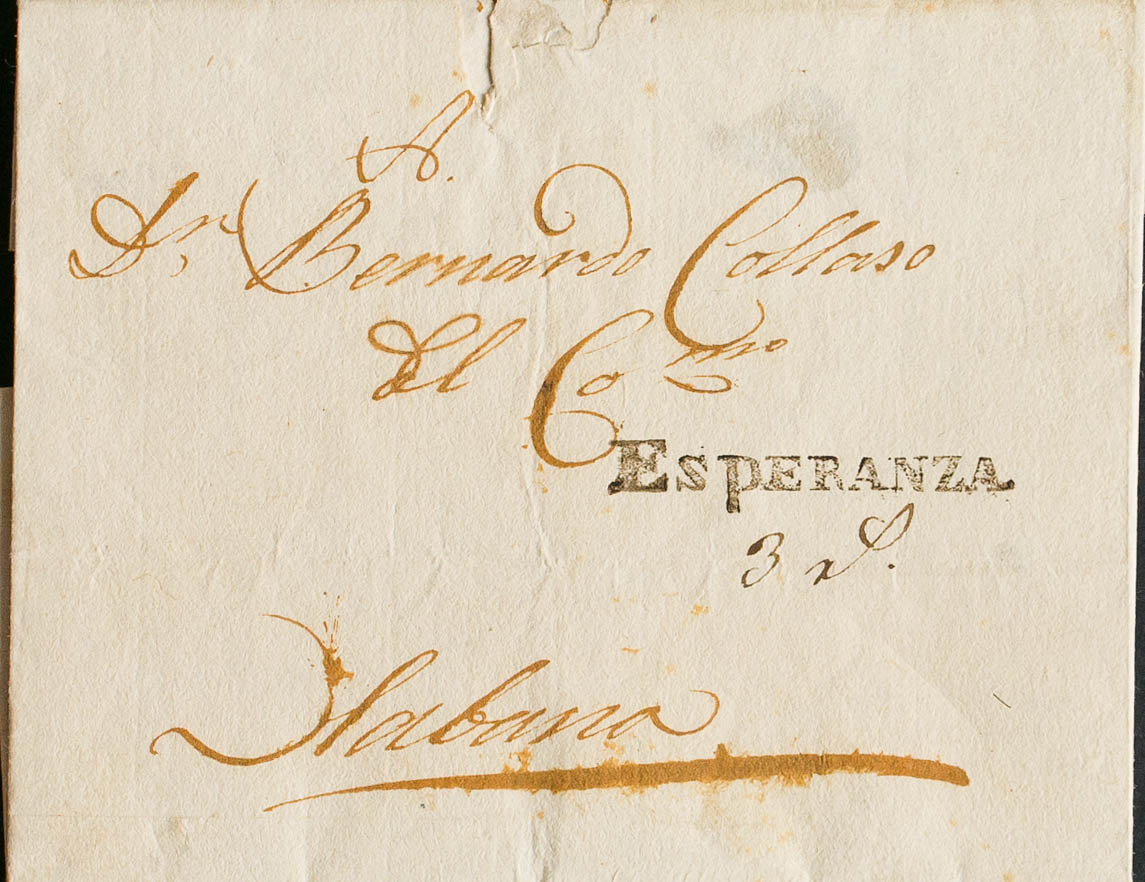 A.
Dn. Bernardo Collaso
del Como
ESPERANZA
3 rs.
Habana